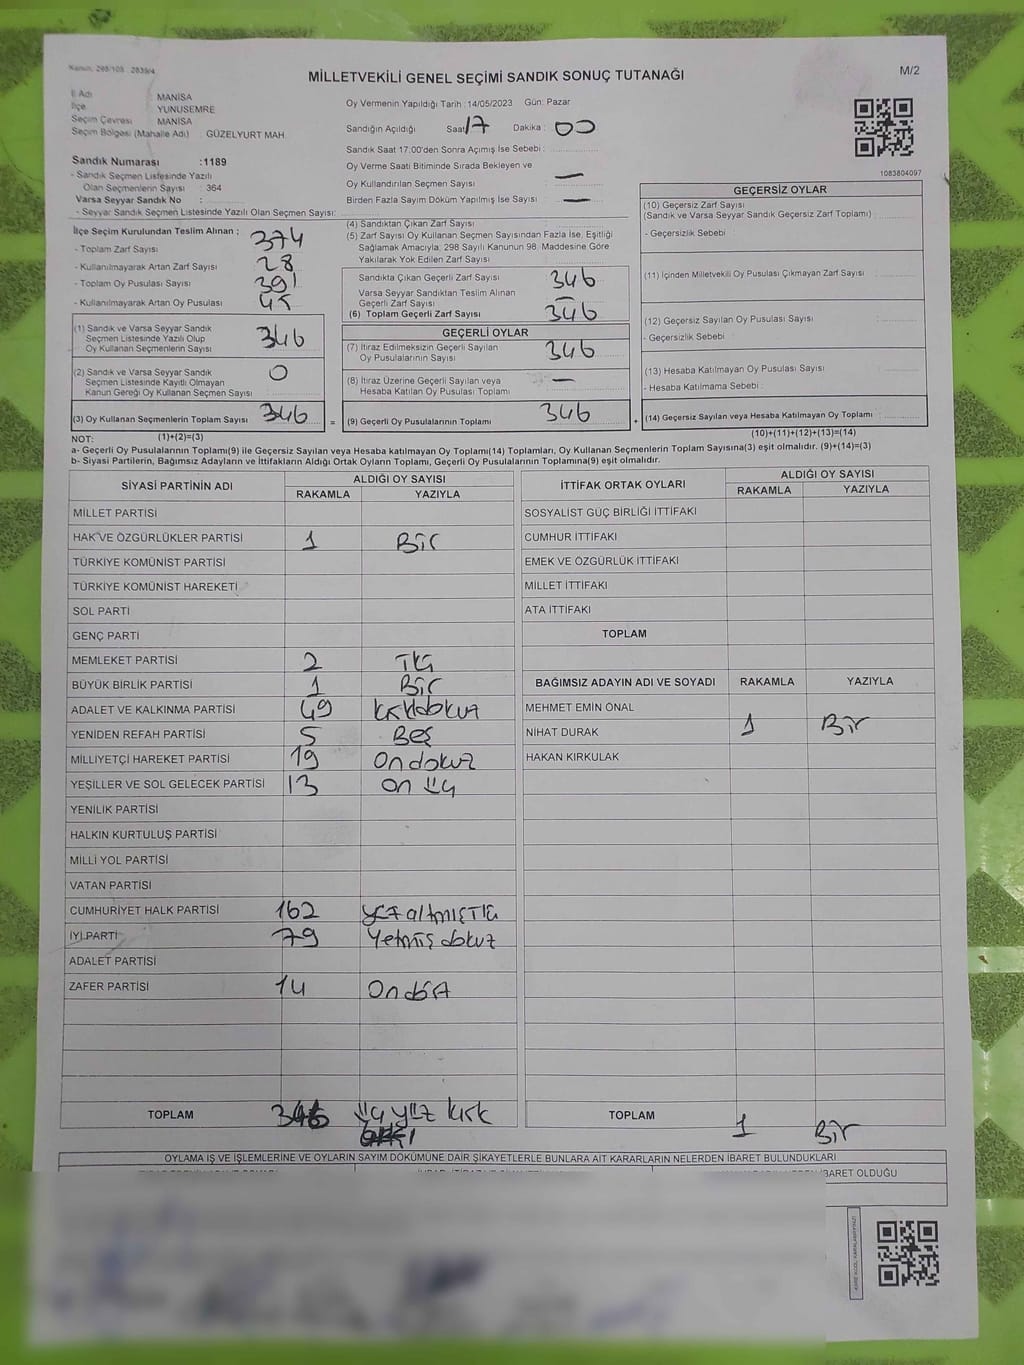 Kanun, 298/105 : 2839/4
MİLLETVEKİLİ GENEL SEÇİMİ SANDIK SONUÇ TUTANAĞI
M/2
İl Adı MANİSA
İlçe YUNUSEMRE
Seçim Çevresi MANİSA
Seçim Bölgesi (Mahalle Adı) : GÜZELYURT MAH.
Oy Vermenin Yapıldığı Tarih : 14/05/2023 Gün: Pazar
Sandığın Açıldığı Saat 17 Dakika : 00
Sandık Saat 17:00'den Sonra Açılmış İse Sebebi :
Oy Verme Saati Bitiminde Sırada Bekleyen ve
Oy Kullandırılan Seçmen Sayısı —
Birden Fazla Sayım Döküm Yapılmış İse Sayısı —
1083804097
Sandık Numarası :1189
- Sandık Seçmen Listesinde Yazılı
Olan Seçmenlerin Sayısı : 364
Varsa Seyyar Sandık No :
- Seyyar Sandık Seçmen Listesinde Yazılı Olan Seçmen Sayısı:
İlçe Seçim Kurulundan Teslim Alınan ;
- Toplam Zarf Sayısı 374
- Kullanılmayarak Artan Zarf Sayısı 28
- Toplam Oy Pusulası Sayısı 391
- Kullanılmayarak Artan Oy Pusulası 45
(1) Sandık ve Varsa Seyyar Sandık
Seçmen Listesinde Yazılı Olup
Oy Kullanan Seçmenlerin Sayısı 346
(2) Sandık ve Varsa Seyyar Sandık
Seçmen Listesinde Kayıtlı Olmayan
Kanun Gereği Oy Kullanan Seçmen Sayısı 0
(3) Oy Kullanan Seçmenlerin Toplam Sayısı 346
(1)+(2)=(3)
(4) Sandıktan Çıkan Zarf Sayısı
(5) Zarf Sayısı Oy Kullanan Seçmen Sayısından Fazla İse, Eşitliği
Sağlamak Amacıyla, 298 Sayılı Kanunun 98. Maddesine Göre
Yakılarak Yok Edilen Zarf Sayısı
Sandıkta Çıkan Geçerli Zarf Sayısı 346
Varsa Seyyar Sandıktan Teslim Alınan
Geçerli Zarf Sayısı —
(6) Toplam Geçerli Zarf Sayısı 346
GEÇERLİ OYLAR
(7) İtiraz Edilmeksizin Geçerli Sayılan
Oy Pusulalarının Sayısı 346
(8) İtiraz Üzerine Geçerli Sayılan veya
Hesaba Katılan Oy Pusulası Toplamı —
= (9) Geçerli Oy Pusulalarının Toplamı 346
GEÇERSİZ OYLAR
(10) Geçersiz Zarf Sayısı
(Sandık ve Varsa Seyyar Sandık Geçersiz Zarf Toplamı)
- Geçersizlik Sebebi :
(11) İçinden Milletvekili Oy Pusulası Çıkmayan Zarf Sayısı
(12) Geçersiz Sayılan Oy Pusulası Sayısı
- Geçersizlik Sebebi :
(13) Hesaba Katılmayan Oy Pusulası Sayısı
- Hesaba Katılmama Sebebi :
+ (14) Geçersiz Sayılan veya Hesaba Katılmayan Oy Toplamı
(10)+(11)+(12)+(13)=(14)
NOT:
a- Geçerli Oy Pusulalarının Toplamı(9) ile Geçersiz Sayılan veya Hesaba katılmayan Oy Toplamı(14) Toplamları, Oy Kullanan Seçmenlerin Toplam Sayısına(3) eşit olmalıdır. (9)+(14)=(3)
b- Siyasi Partilerin, Bağımsız Adayların ve İttifakların Aldığı Ortak Oyların Toplamı, Geçerli Oy Pusulalarının Toplamına(9) eşit olmalıdır.
SİYASİ PARTİNİN ADI ALDIĞI OY SAYISI
RAKAMLA YAZIYLA
MİLLET PARTİSİ
HAK VE ÖZGÜRLÜKLER PARTİSİ 1 Bir
TÜRKİYE KOMÜNİST PARTİSİ
TÜRKİYE KOMÜNİST HAREKETİ
SOL PARTİ
GENÇ PARTİ
MEMLEKET PARTİSİ 2 İki
BÜYÜK BİRLİK PARTİSİ 1 Bir
ADALET VE KALKINMA PARTİSİ 49 kırkdokuz
YENİDEN REFAH PARTİSİ 5 Beş
MİLLİYETÇİ HAREKET PARTİSİ 19 Ondokuz
YEŞİLLER VE SOL GELECEK PARTİSİ 13 on üç
YENİLİK PARTİSİ
HALKIN KURTULUŞ PARTİSİ
MİLLİ YOL PARTİSİ
VATAN PARTİSİ
CUMHURİYET HALK PARTİSİ 162 yüzaltmışiki
İYİ PARTİ 79 Yetmiş dokuz
ADALET PARTİSİ
ZAFER PARTİSİ 14 Ondört
TOPLAM üç yüz kırk
İTTİFAK ORTAK OYLARI ALDIĞI OY SAYISI
RAKAMLA YAZIYLA
SOSYALİST GÜÇ BİRLİĞİ İTTİFAKI
CUMHUR İTTİFAKI
EMEK VE ÖZGÜRLÜK İTTİFAKI
MİLLET İTTİFAKI
ATA İTTİFAKI
TOPLAM
BAĞIMSIZ ADAYIN ADI VE SOYADI RAKAMLA YAZIYLA
MEHMET EMİN ÖNAL
NİHAT DURAK 1 Bir
HAKAN KIRKULAK
TOPLAM 1 Bir
OYLAMA İŞ VE İŞLEMLERİNE VE OYLARIN SAYIM DÖKÜMÜNE DAİR ŞİKAYETLERLE BUNLARA AİT KARARLARIN NELERDEN İBARET BULUNDUKLARI
İBARET OLDUĞU